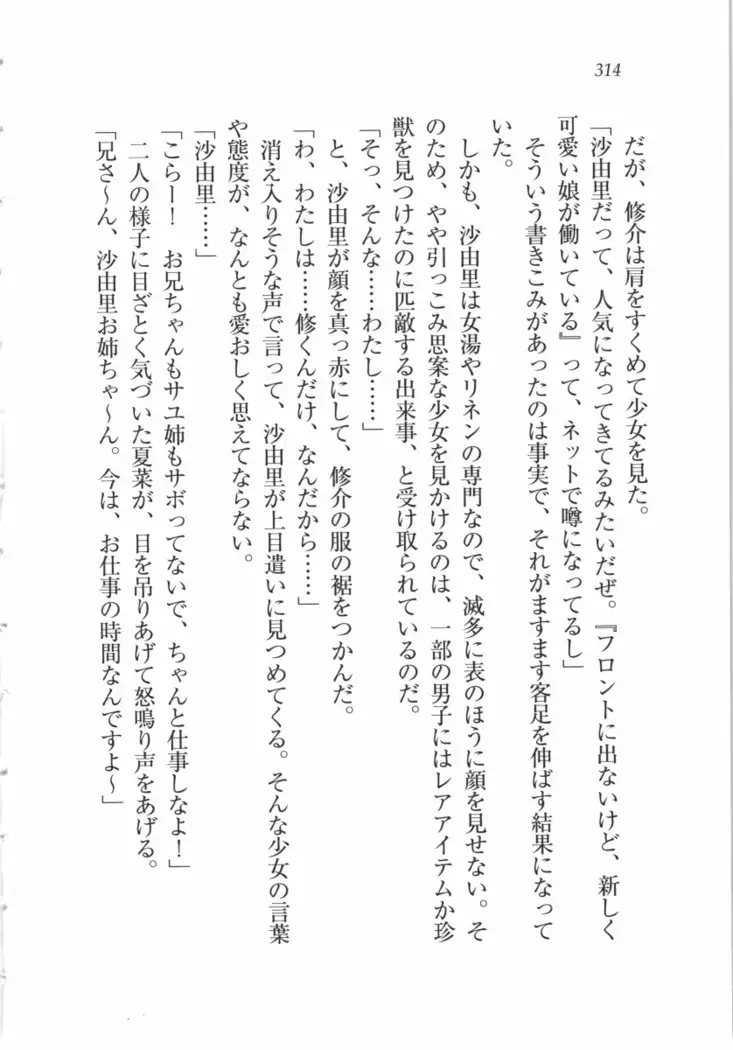 314
だが、修介は肩をすくめて少女を見た。
「沙由里だって、人気になってきてるみたいだぜ。『フロントに出ないけど、新しく
可愛い娘が働いている』って、ネットで噂になってるし」
そういう書きこみがあったのは事実で、それがますます客足を伸ばす結果になって
いた。
しかも、沙由里は女湯やリネンの専門なので、滅多に表のほうに顔を見せない。そ
のため、やや引っこみ思案な少女を見かけるのは、一部の男子にはレアアイテムか珍
獣を見つけたのに匹敵する出来事、と受け取られているのだ。
「そっ、そんな……わたし……」
と、沙由里が顔を真っ赤にして、修介の服の裾をつかんだ。
「わ、わたしは……修くんだけ、なんだから……」
消え入りそうな声で言って、沙由里が上目遣いに見つめてくる。そんな少女の言葉
や態度が、なんとも愛おしく思えてならない。
「沙由里……」
「こらー！　お兄ちゃんもサユ姉もサボってないで、ちゃんと仕事しなよ！」
二人の様子に目ざとく気づいた夏菜が、目を吊りあげて怒鳴り声をあげる。
「兄さ～ん、沙由里お姉ちゃ～ん。今は、お仕事の時間なんですよ～」